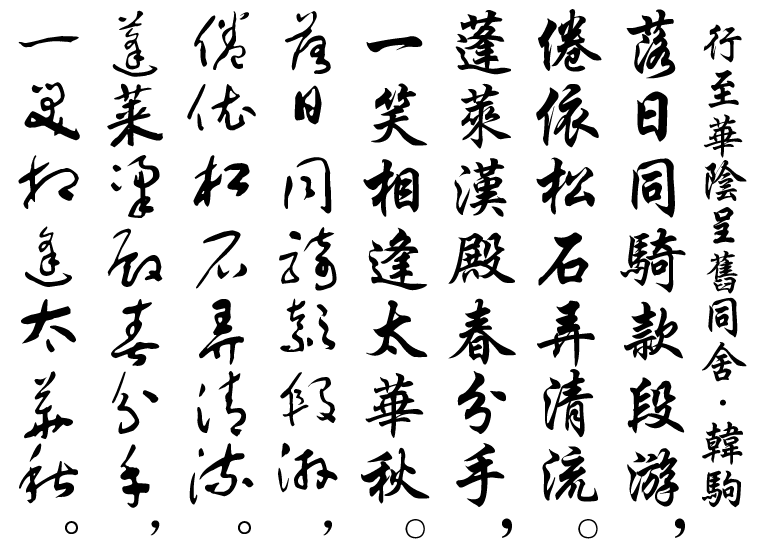 行至華陰呈舊同舍·韓駒
落日同騎款段游，
倦依松石弄清流。
蓬萊漢殿春分手，
一笑相逢太華秋。
落日同騎款段游，
倦依松石弄清流。
蓬萊漢殿春分手，
一笑相逢太華秋。